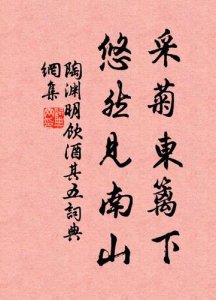 采菊東篱下
悠然見南山
陶渊明飲酒其五詞典
網集